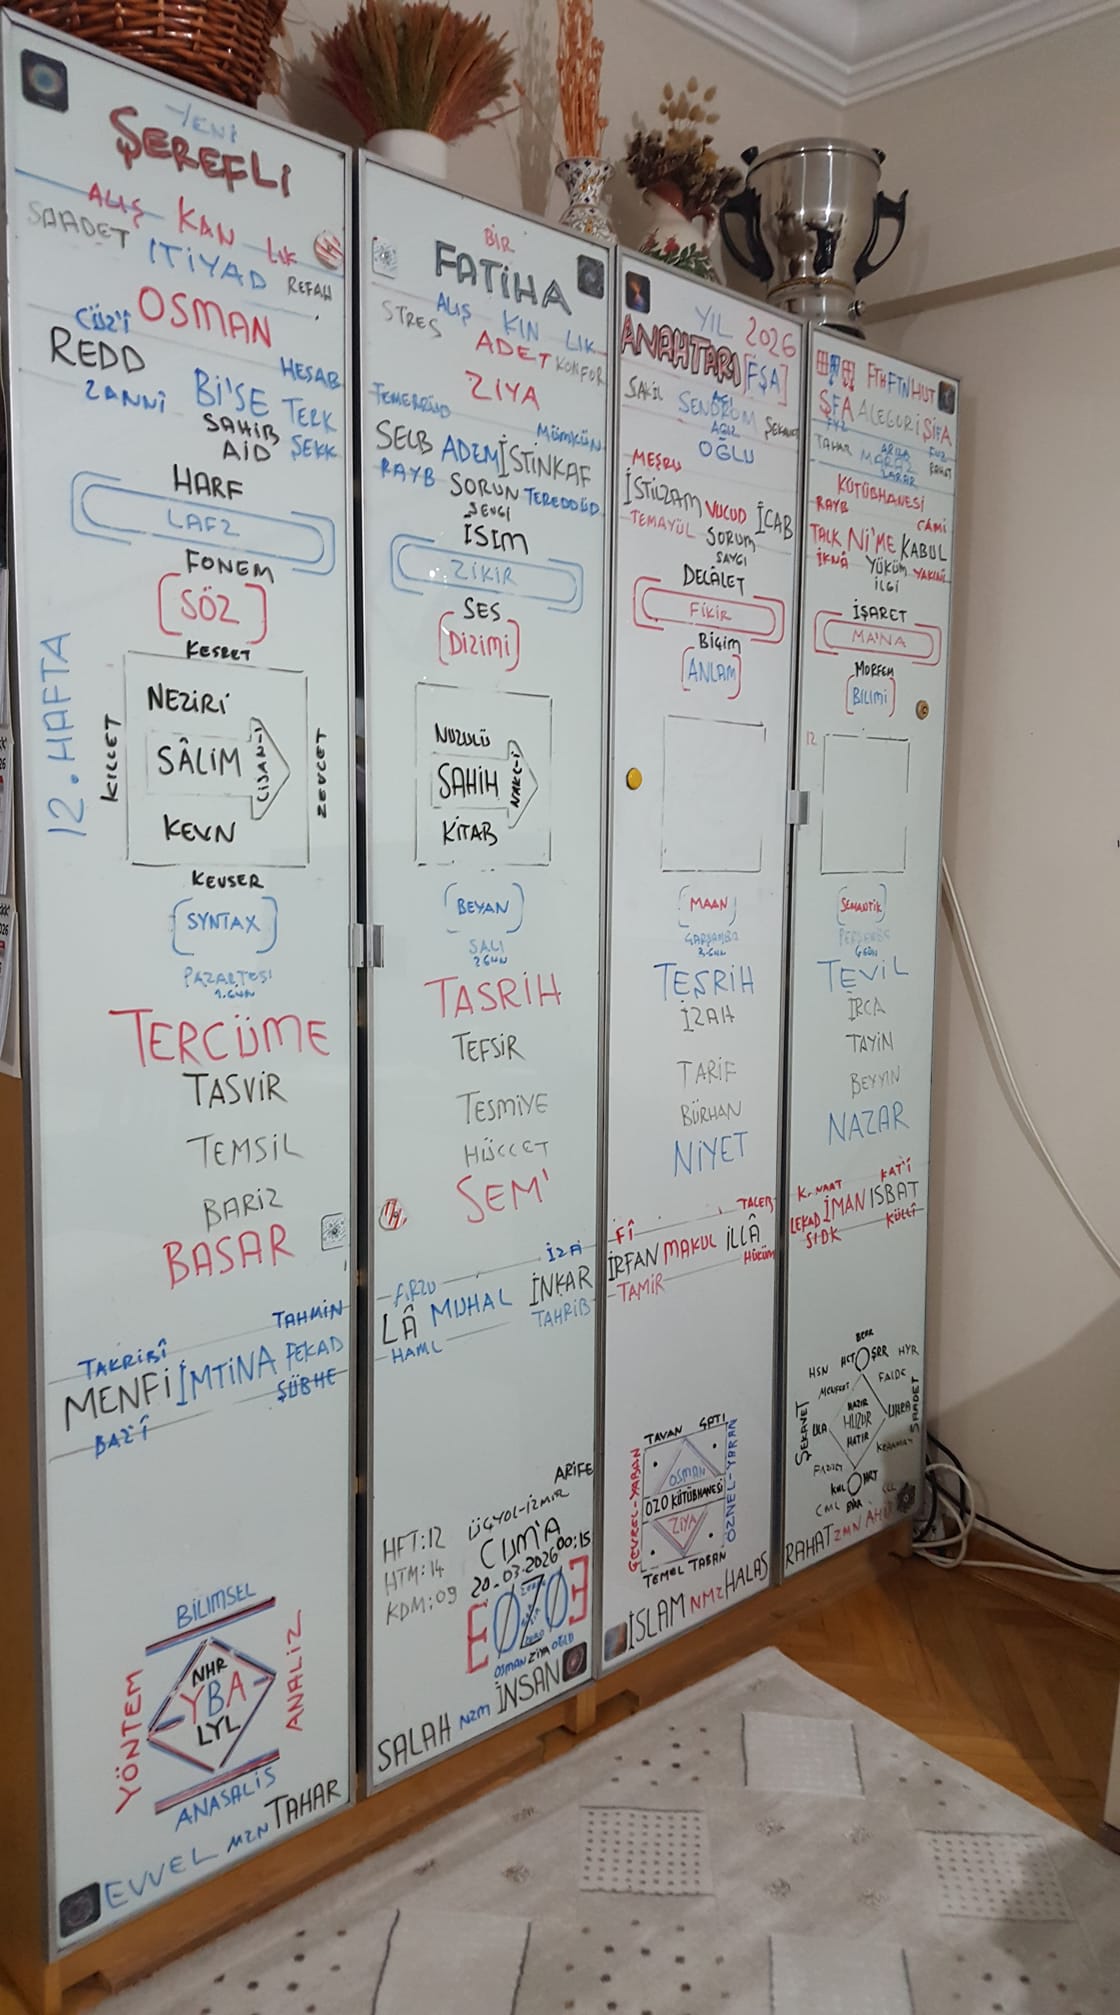 YENİ
ŞEREFLİ
ALIŞ KAN LIK
SAADET İTİYAD REFAH
OSMAN
CÜZ'İ
REDD HESAB
ZANNİ Bİ'SE TERK
SAHİB
AİD ŞEKK
HARF
LAFZ
FONEM
[SÖZ]
KESRET
12.HAFTA
KILLET
NEZİRİ
SÂLİM
LİSAN-I
ZEVCET
KEVN
KEVSER
[SYNTAX]
PAZARTESİ
1.GÜN
TERCÜME
TASVİR
TEMSİL
BARİZ
BASAR
TAHMİN
TAKRİBÎ
MENFİ İMTİNA FEKAD
ŞÜBHE
BAZ'Î
BİLİMSEL
YÖNTEM
NHR
YBA
LYL
ANALİZ
ANASALİS
EVVEL MZN TAHAR
BİR
FATİHA
ALIŞ KIN LIK
STRES ADET KONFOR
ZİYA
TEMERRÜD MÜMKÜN
SELB ADEM İSTİNKAF
RAYB SORUN TEREDDÜD
SEVGİ
İSİM
ZİKİR
SES
[DİZİMİ]
NUZULÜ
SAHİH
NAKL-İ
KİTAB
[BEYAN]
SALI
2.GÜN
TASRİH
TEFSİR
TESMİYE
HÜCCET
SEM'
ARZU İZA
LÂ MUHAL İNKAR
HAML TAHRİB
ARİFE
ÜÇYOL-İZMİR
HFT:12 CUM'A
HTM:14 20.03.2026 00:15
KDM:09
EOZOE
OSMAN ZİYA OĞLU
SALAH NZM İNSAN
YIL 2026
ANAHTARI [FŞA]
SAKİL SENDROM ŞEKAVET
AĞIZ
OĞLU
MEŞRU
İSTİLZAM VUCUD İCAB
TEMAYÜL SORUM
SAYGI
DELÂLET
FİKİR
BİÇİM
[ANLAM]
[MAAN]
ÇARŞAMBA
3.GÜN
TEŞRİH
İZAH
TARİF
BÜRHAN
NİYET
FÎ TALEB
İRFAN MAKUL İLLÂ
TAMİR HÜKÜM
TAVAN ÇATI
ÇEVREL-YABAN
OSMAN
OZO KÜTÜBHANESİ
ZİYA
ÖZNEL-YARAN
TEMEL TABAN
İSLAM NMZ HALAS
FTH FTN HUT
ŞFA ALEGORİ ŞİFA
MARAZ
KÜTÜBHANESİ
RAYB CAMİ
TALK Nİ'ME KABUL
İKNÂ YÜKÜM YAKINİ
İLGİ
İŞARET
MA'NA
MORFEM
[BİLİMİ]
12
[SEMANTİK]
PERŞEMBE
4.GÜN
TEVİL
İRCA
TAYİN
BEYYİN
NAZAR
KANAAT KAT'İ
LEKAD İMAN ISBAT
SIDK KÜLLÎ
HSN HCT ŞRR HYR
MENFEAT FAİDE
ŞEKAVET
HAZIR
HUZUR
HATIR
UHRA
SAADET
KERAMAT
RAHAT ZMN AHİD